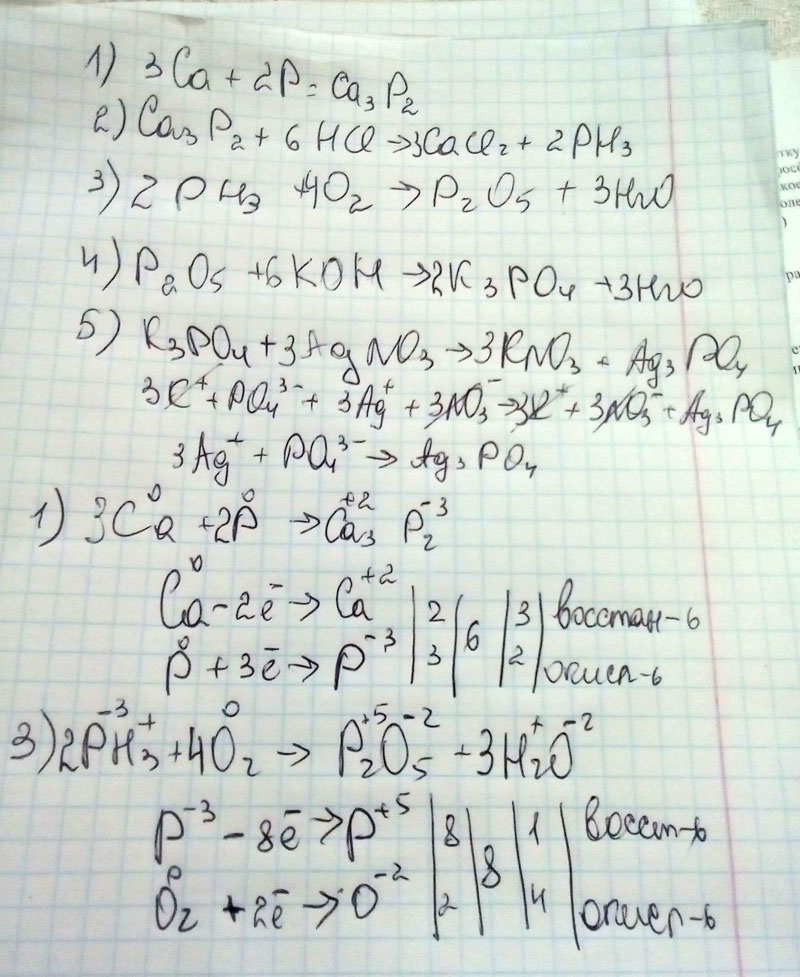 1) 3Ca + 2P = Ca₃P₂
2) Ca₃P₂ + 6HCl → 3CaCl₂ + 2PH₃
3) 2PH₃ + 4O₂ → P₂O₅ + 3H₂O
4) P₂O₅ + 6KOH → 2K₃PO₄ + 3H₂O
5) K₃PO₄ + 3AgNO₃ → 3KNO₃ + Ag₃PO₄
3K⁺ + PO₄³⁻ + 3Ag⁺ + 3NO₃⁻ → 3K⁺ + 3NO₃⁻ + Ag₃PO₄
3Ag⁺ + PO₄³⁻ → Ag₃PO₄
1) 3Ca⁰ + 2P⁰ → Ca₃⁺² P₂⁻³
Ca⁰ - 2ē → Ca⁺² | 2 | 6 | 3 | восстан-ь
P⁰ + 3ē → P⁻³ | 3 | | 2 | окисл-ь
3) 2P⁻³H₃⁺ + 4O₂⁰ → P₂⁺⁵O₅⁻² + 3H₂⁺O⁻²
P⁻³ - 8ē → P⁺⁵ | 8 | 8 | 1 | восст-ь
O₂⁰ + 2ē → O⁻² | 2 | | 4 | окисл-ь